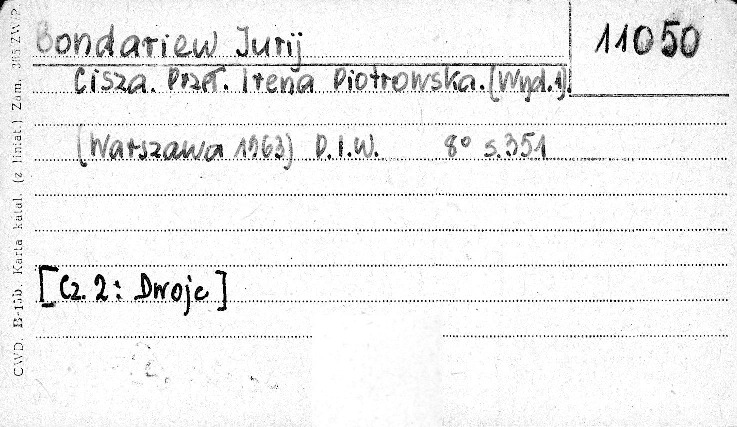 Bondariew Jurij
11050
Cisza. Przeł. Irena Piotrowska. (Wyd. 1).
(Warszawa 1963) P.I.W. 8° s. 351
[Cz. 2: Dwoje]
CWD. B-15b. Karta katal. (z liniat.) Zam. 385 ZW P.